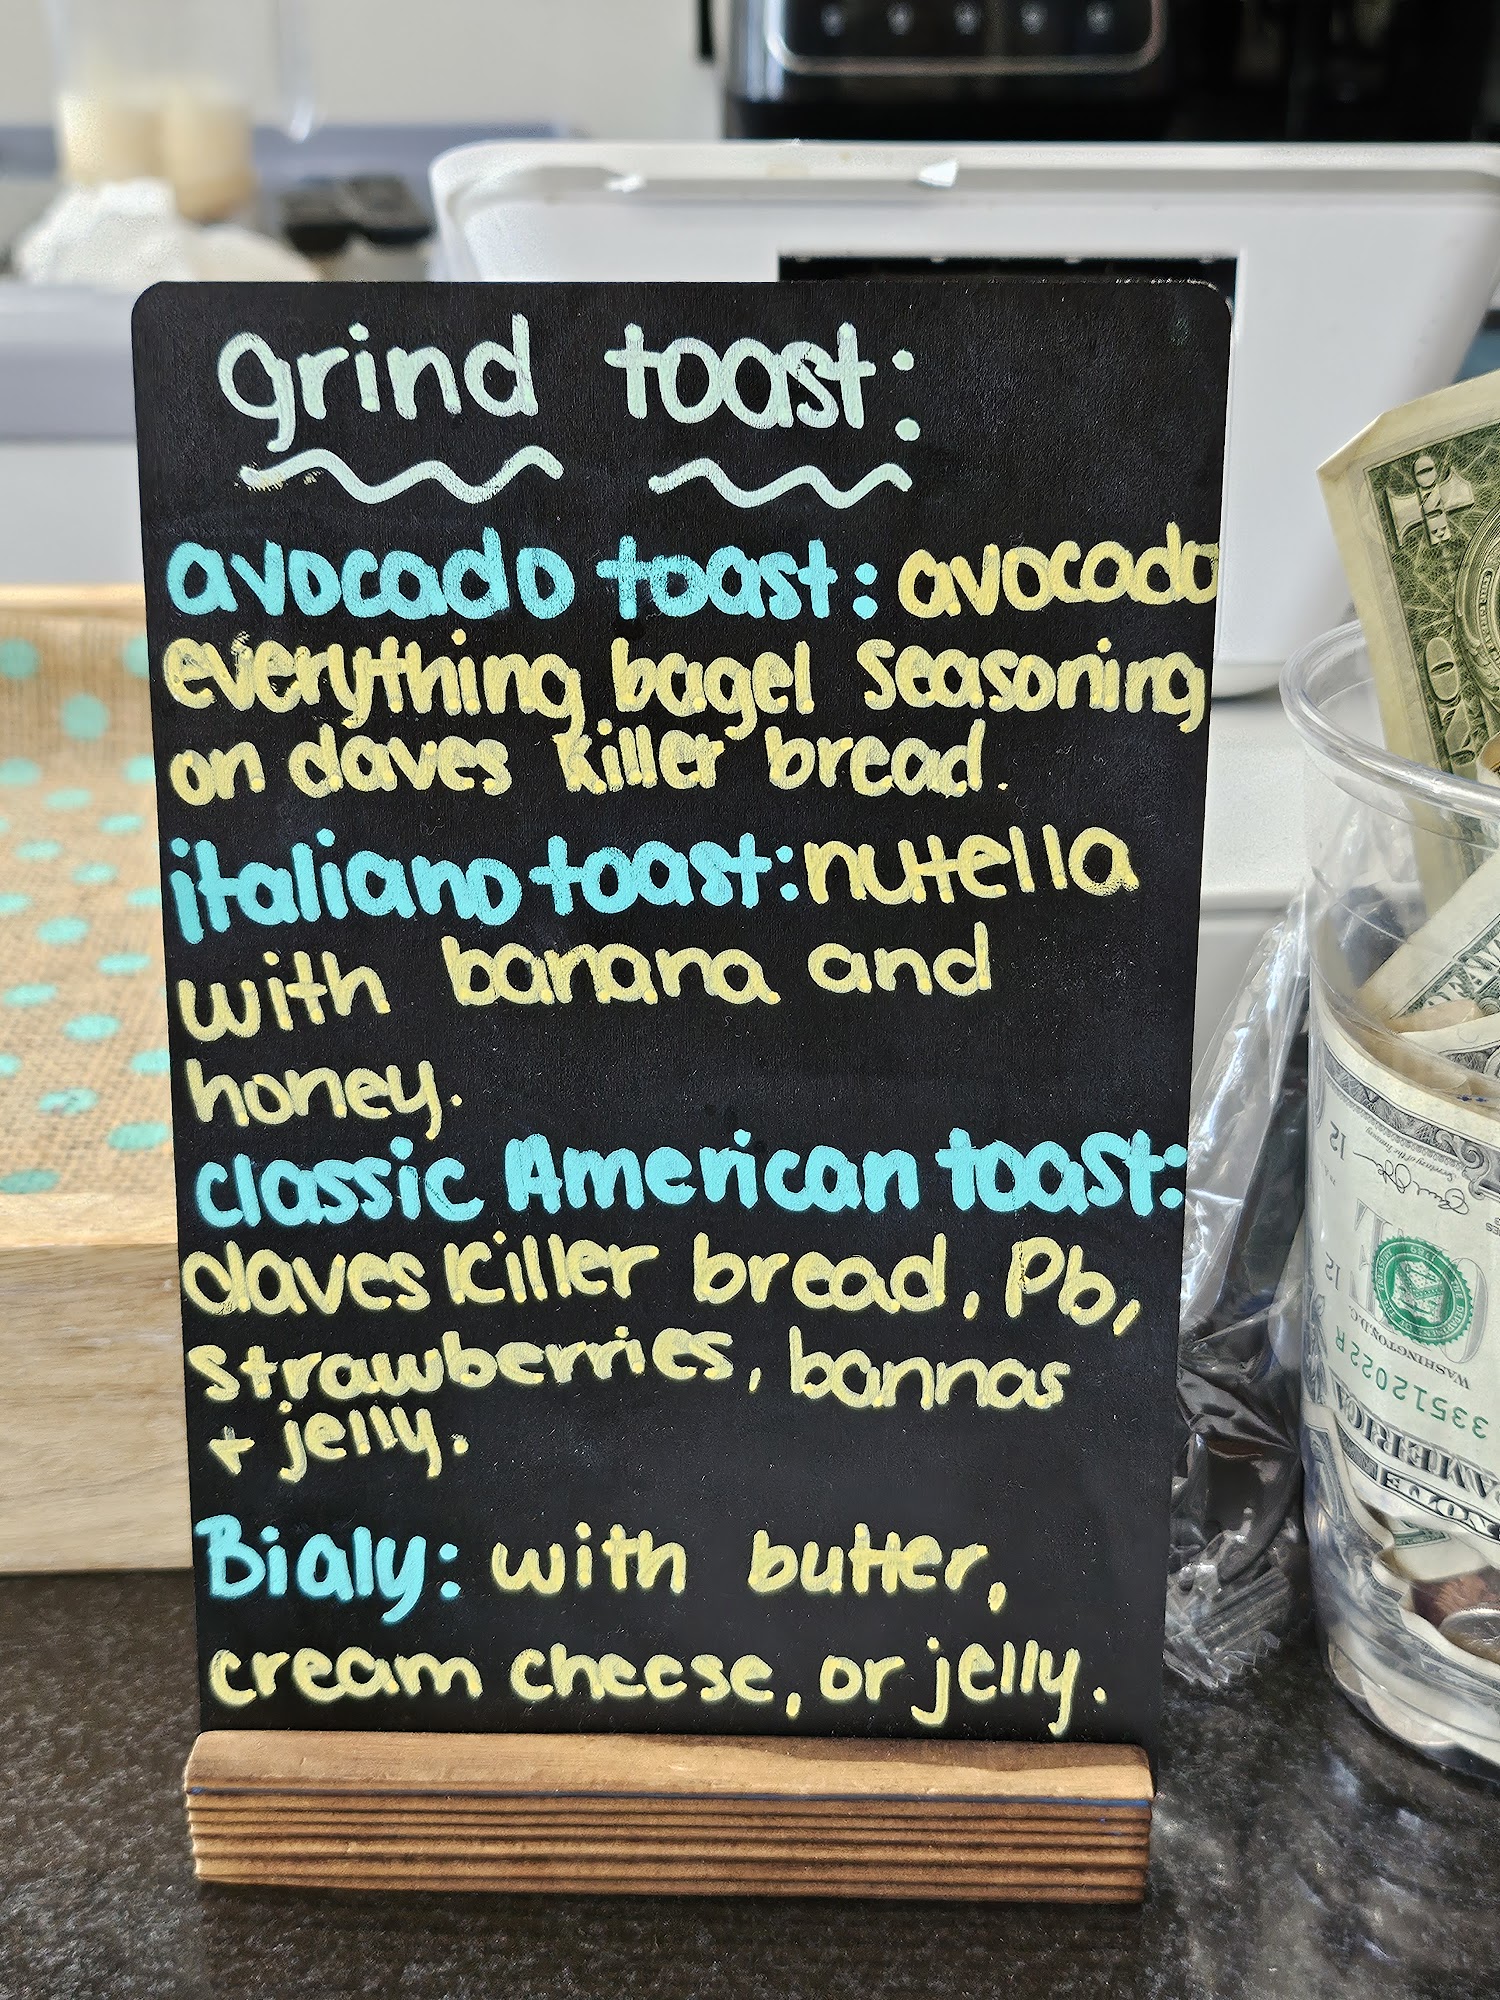 grind toast:
avocado toast: avocado
everything bagel seasoning
on daves killer bread.
italiano toast: nutella
with banana and
honey.
classic American toast:
daves killer bread, Pb,
strawberries, bannas
+ jelly.
Bialy: with butter,
cream cheese, or jelly.
ONE
12
12
WASHINGTON, D.C.
33512022R
AMERICA
NOTE